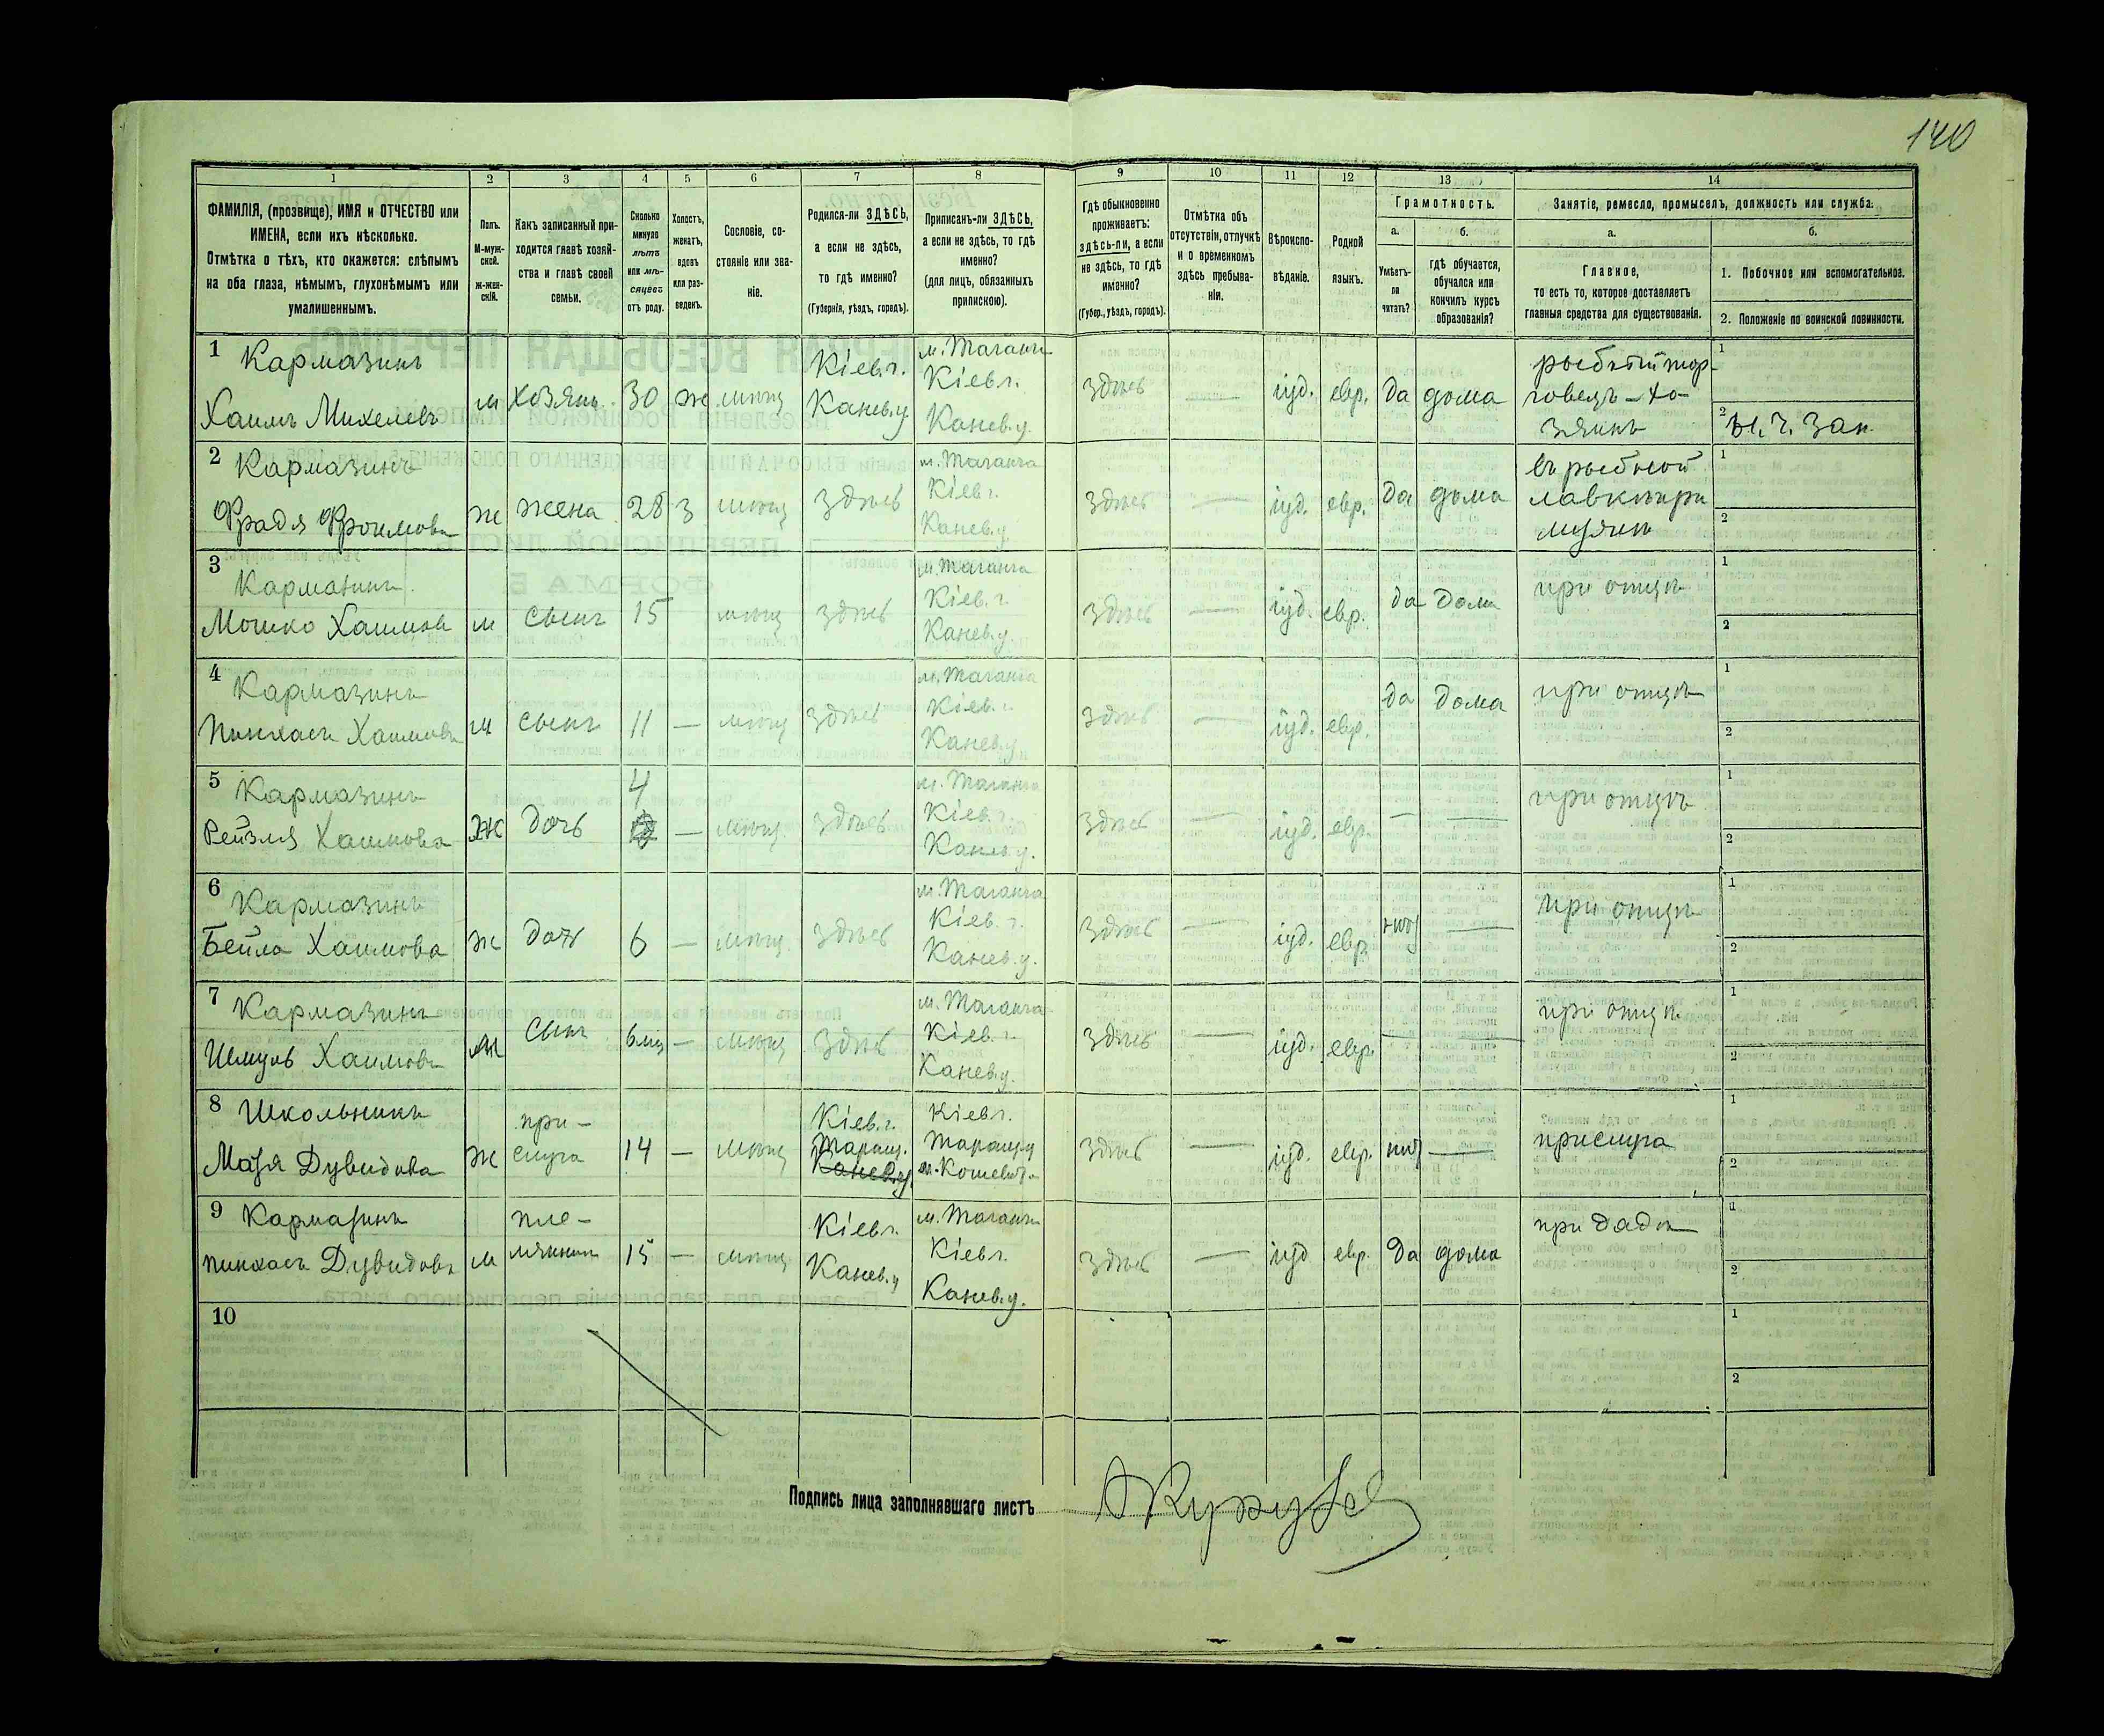 140
1 2 3 4 5 6 7 8 9 10 11 12 13 14
ФАМИЛІЯ, (прозвище), ИМЯ и ОТЧЕСТВО или
ИМЕНА, если ихъ нѣсколько.
Отмѣтка о тѣхъ, кто окажется: слѣпымъ
на оба глаза, нѣмымъ, глухонѣмымъ или
умалишеннымъ.
Полъ.
М-муж-
ской.
ж-жен-
скій.
Какъ записанный при-
ходится главѣ хозяй-
ства и главѣ своей
семьи.
Сколько
минуло
лѣтъ
или мѣ-
сяцевъ
отъ роду.
Холостъ,
женатъ,
вдовъ
или раз-
веденъ.
Сословіе, со-
стояніе или зва-
ніе.
Родился-ли ЗДѢСЬ,
а если не здѣсь,
то гдѣ именно?
(Губернія, уѣздъ, городъ).
Приписанъ-ли ЗДѢСЬ,
а если не здѣсь, то гдѣ
именно?
(для лицъ, обязанныхъ
припискою).
Гдѣ обыкновенно
проживаетъ:
здѣсь-ли, а если
не здѣсь, то гдѣ
именно?
(Губер., уѣздъ, городъ).
Отмѣтка объ
отсутствіи, отлучкѣ
и о временномъ
здѣсь пребыва-
ніи.
Вѣроиспо-
вѣданіе.
Родной
языкъ.
Грамотность.
а.
Умѣетъ-
ли
читать?
б.
гдѣ обучается,
обучался или
кончилъ курсъ
образованія?
Занятіе, ремесло, промыселъ, должность или служба.
а.
Главное,
то есть то, которое доставляетъ
главныя средства для существованія.
б.
1. Побочное или вспомогательное.
2. Положеніе по воинской повинности.
1 Кармазинъ
Хаимъ Михелевъ
м
хозяинъ
30
ж
мѣщ
Кіев.г.
Канев.у
м. Таганча
Кіев г.
Канев.у.
здѣсь
—
іуд.
евр.
да
дома
рыбный тор-
говецъ – хо-
зяинъ
1
2
2 Кармазинъ
Фрадя Фроимова
ж
жена
28
з
мѣщ
здѣсь
м. Таганча
Кіев г.
Канев.у.
здѣсь
—
іуд.
евр.
да
дома
въ рыбной
лавкѣ при
мужѣ
1
2
3 Кармазинъ
Мошко Хаимовъ
м
сынъ
15
мѣщ
здѣсь
м. Таганча
Кіев. г.
Канев.у.
здѣсь
—
іуд.
евр.
да
дома
при отцѣ
1
2
4 Кармазинъ
Пинхасъ Хаимовъ
м
сынъ
11
—
мѣщ
здѣсь
м. Таганча
Кіев. г.
Канев.у.
здѣсь
—
іуд.
евр.
да
дома
при отцѣ
1
2
5 Кармазинъ
Рейзля Хаимова
ж
дочь
4
—
мѣщ.
здѣсь
м. Таганча
Кіев. г.
Канев.у.
здѣсь
—
іуд.
евр.
—
—
при отцѣ
1
2
6 Кармазинъ
Бейла Хаимова
ж
дочь
6
—
мѣщ.
здѣсь
м. Таганча
Кіев. г.
Канев.у.
здѣсь
—
іуд.
евр.
нѣт
—
при отцѣ
1
2
7 Кармазинъ
Хаимовъ
м
сынъ
6 мѣс
—
мѣщ
здѣсь
м. Таганча
Кіев. г.
Канев.у.
здѣсь
—
іуд.
евр.
—
—
при отцѣ
1
2
8 Школьникъ
Дувидова
ж
при-
слуга
14
—
мѣщ
Кіев.г.
Таращ.
Канев.у
Кіев г.
Таращ.у
здѣсь
—
іуд.
евр.
нѣт
—
прислуга
1
2
9 Кармазинъ
Пинхасъ Дувидовъ
м
пле-
мянникъ
15
—
мѣщ
Кіев г.
Канев.у
м. Таганча
Кіев г.
Канев.у.
здѣсь
—
іуд
евр.
да
дома
при дядѣ
1
2
10
1
2
Подпись лица заполнявшаго листъ